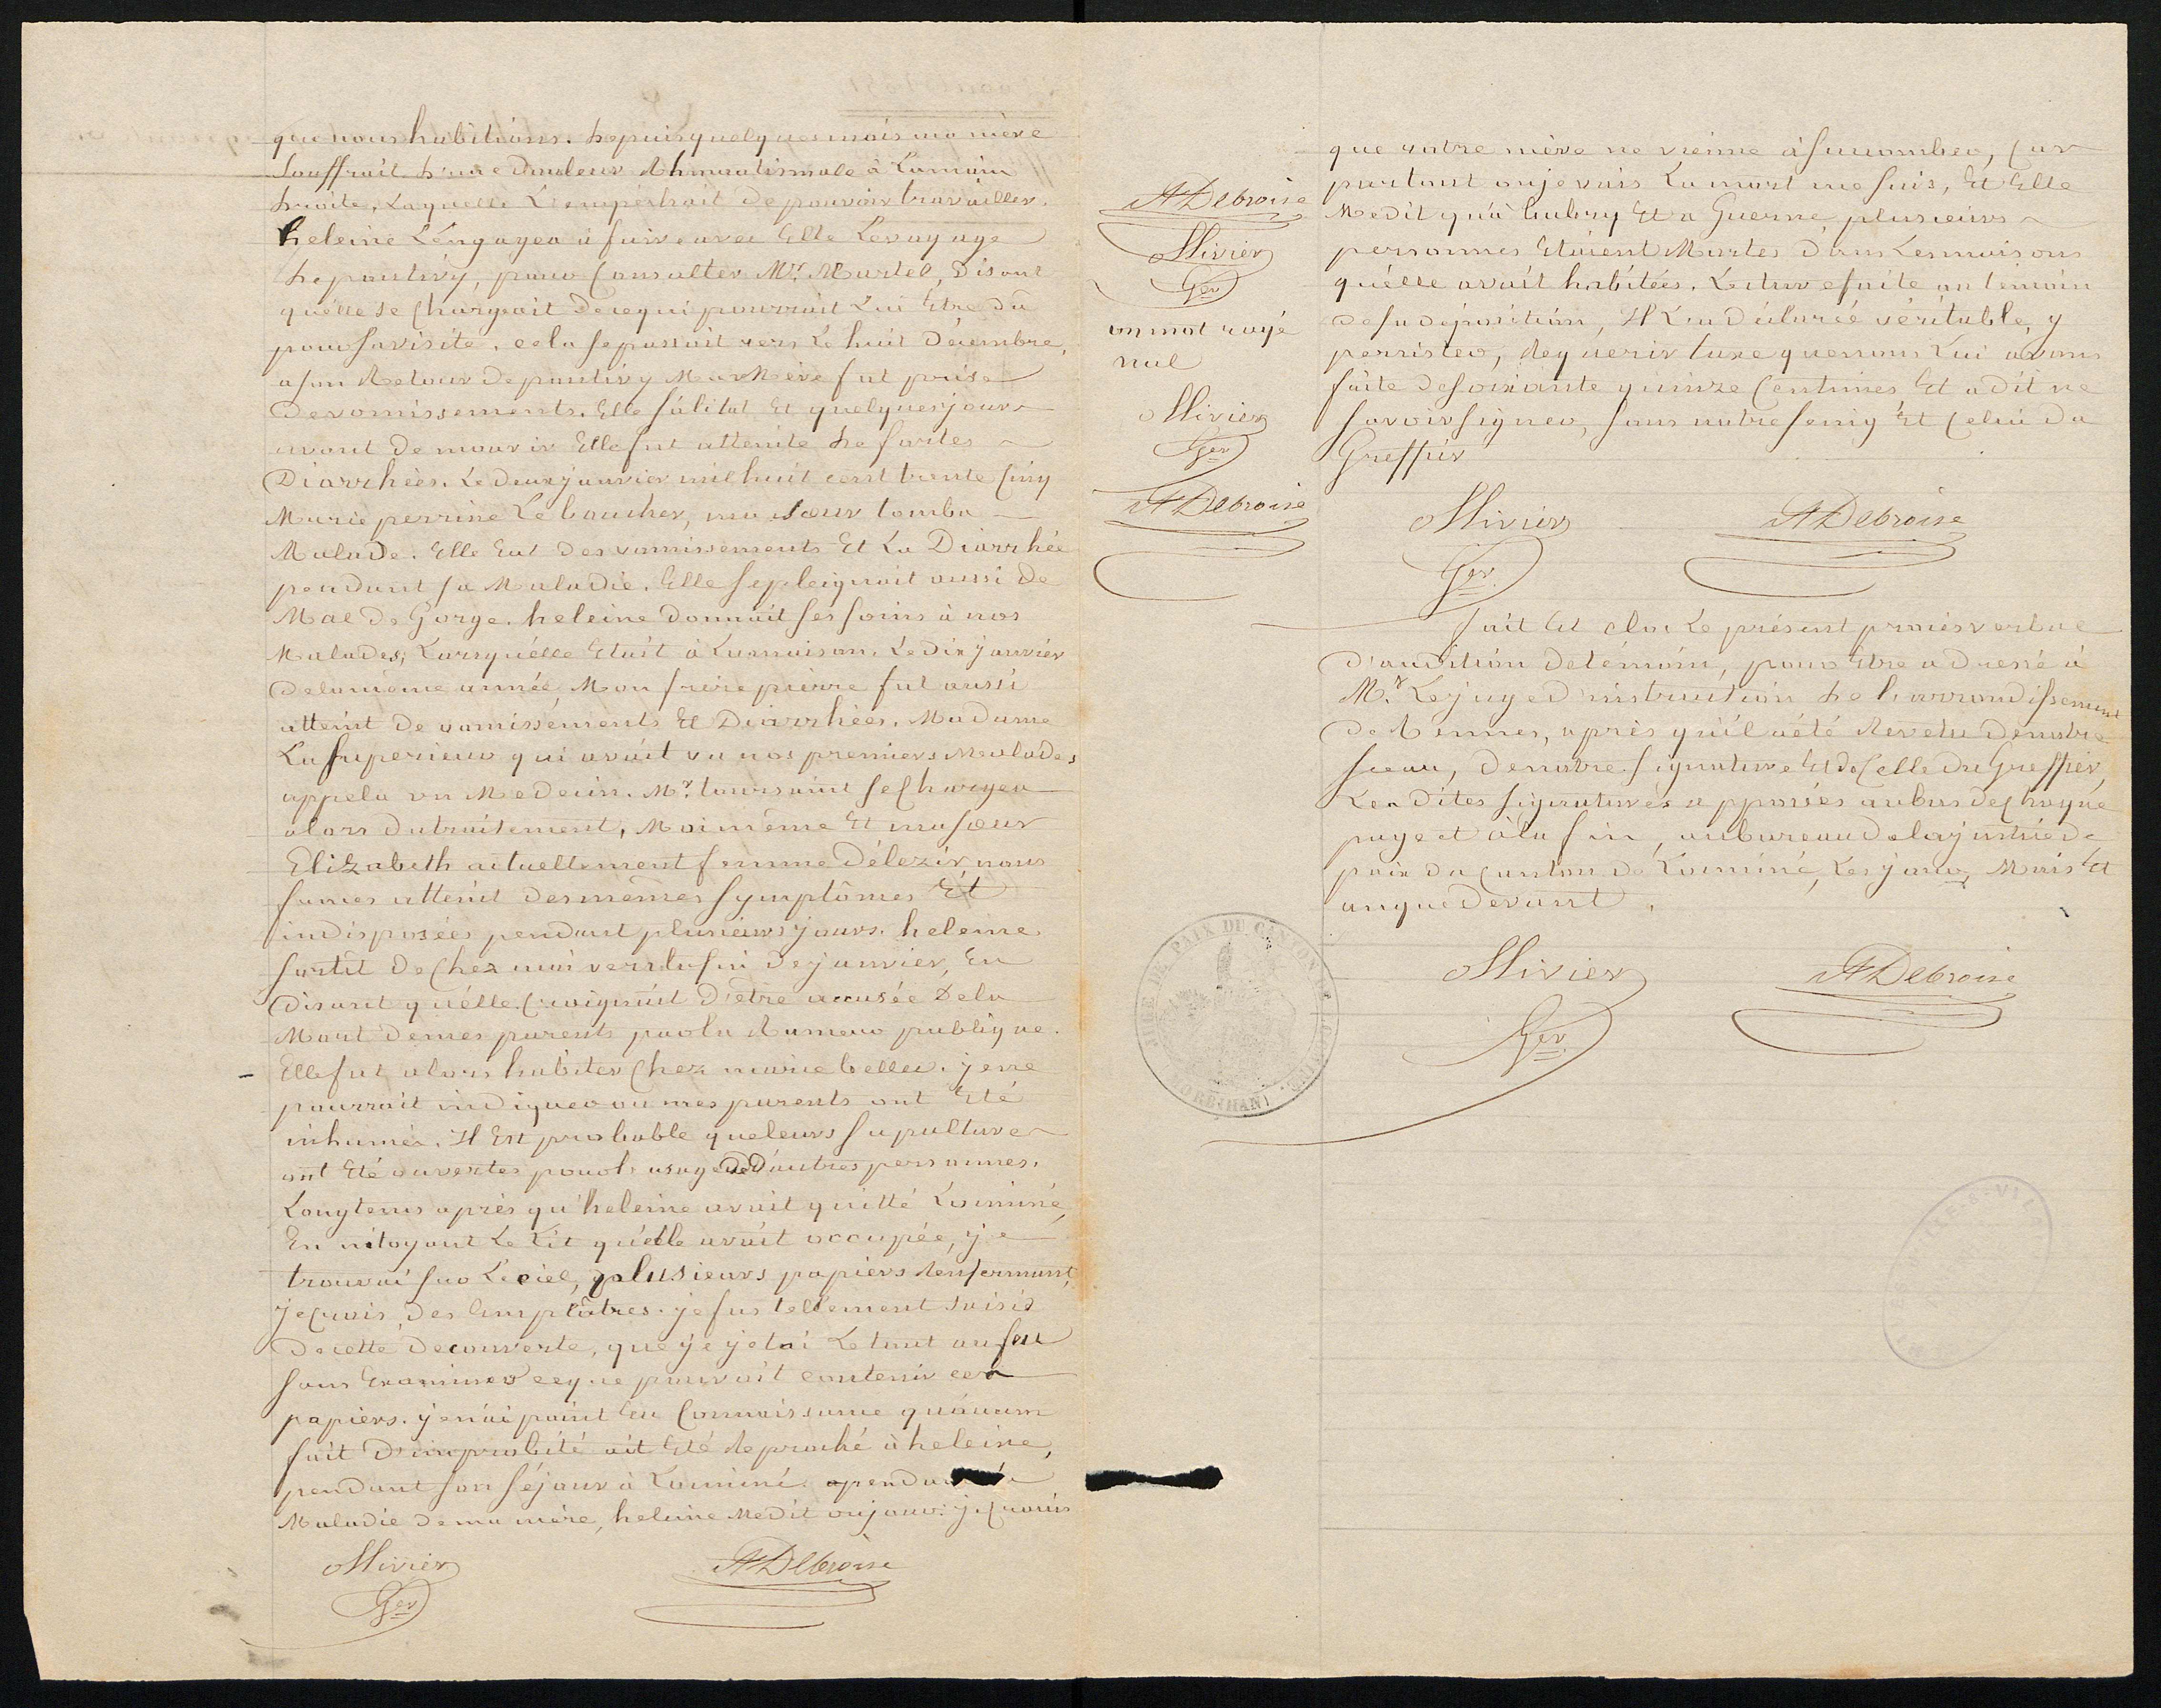 que nous habitions. Depuis quelques mois ma mère
Souffrait d'une douleur Rhumatismale à La main
droite, Laquelle L'empêchait de pouvoir travailler.
heleine L'engagea à faire avec Elle Le voyage
de pontivy, pour Consulter Mr. Martel, Disant
qu'elle se Chargeait de ce qui pourrait Lui Etre du
pour sa visite. cela se passait vers Le huit Décembre,
a son Retour de pontivy Ma Mère fut prise
de vomissements. Elle s'alitat, Et quelques jours
avant de mourir Elle fut atteinte de fortes
Diarrhées. Le deux janvier mil huit cent trente Cinq
Marie perrine Le boucher, ma sœur tomba
Malade. Elle Eut des vomissements Et La Diarrhée
pendant sa Maladie. Elle se pleignait aussi de
Mal de Gorge. heleine donnait ses soins à nos
Malades, Lorsqu'élle Etait à La maison. Le dix janvier
de la même année, Mon frère pierre fut aussi
atteint de vomissements Et Diarrhées. Madame
La superieur qui avait vu nos premiers Malades
appela un Medecin. Mr. toursaint se Chargea
alors du traitement, Moi même Et ma sœur
Elizabeth actuellement femme Délezir nous
fumes atteint des mêmes symptômes Et
indisposées pendant plusieurs jours. heleine
sortit de Chez moi vers la fin de janvier, En
disant qu'élle Craignait d'être accusée de la
Mort de mes parents par la Rumeur publique.
Elle fut alors habiter Chez marie bellec. je ne
pourrait indiquer ou mes parents ont Eté
inhumés. Il Est probable que leurs supulture
ont Eté ouvertes pour l'usage de d'autres personnes.
Longtems après qu'heleine avait quitté Lominé,
En nitoyant Le Lit qu'elle avait occupée, je
trouvai sur Le ciel, plusieurs papiers Renfermant,
je Crois, des Emplâtres. je fus tellement saisis
de cette decouverte, que je jetai Le tout au feu
sans Examiner ce que pouvait contenir ces
papiers. je n'ai point Eu Connaissance qu'aucun
fait d'improbité ait Eté Reproché à heleine,
pendant son séjour à Lominé. pendant la
Maladie de ma mère, heleine Me dit un jour: je Crains
Ollivier
Ger
A Debroise
A Debroise
Ollivier
Ger
un mot rayé
nul
Ollivier
Ger
A Debroise
que votre mère ne vienne à succomber, Car
partout ou je vais La mort me suis, Et Elle
Me dit qu'à bubry Et a Guerne, plusieurs
personnes Etaient Mortes dans Les maisons
qu'élle avait habitées. Lecture faite au temoin
de sa déposition, Il L'a déclarée véritable, y
persister, Requerir taxe que nous Lui avons
faite de soixante quinze Centimes, Et a dit ne
savoir signer, sous notre seing Et Celui du
Greffier
Ollivier
Ger
A Debroise
fait Et clos Le présent procès verbal
d'audition de témoin, pour Etre adressé à
Mr. Le juge d'instruction de L'arrondissement
de Rennes, après qu'il a été Revetu de notre
sceau, de notre signature Et de Celle du Greffier,
Les dites signatures apposées au bas de Chaque
page et à la fin, au bureau de la justice de
paix du Canton de Lominé, Les jour, Mois Et
an que devant.
Ollivier
Ger
A Debroise
DE PAIX DU CANTON